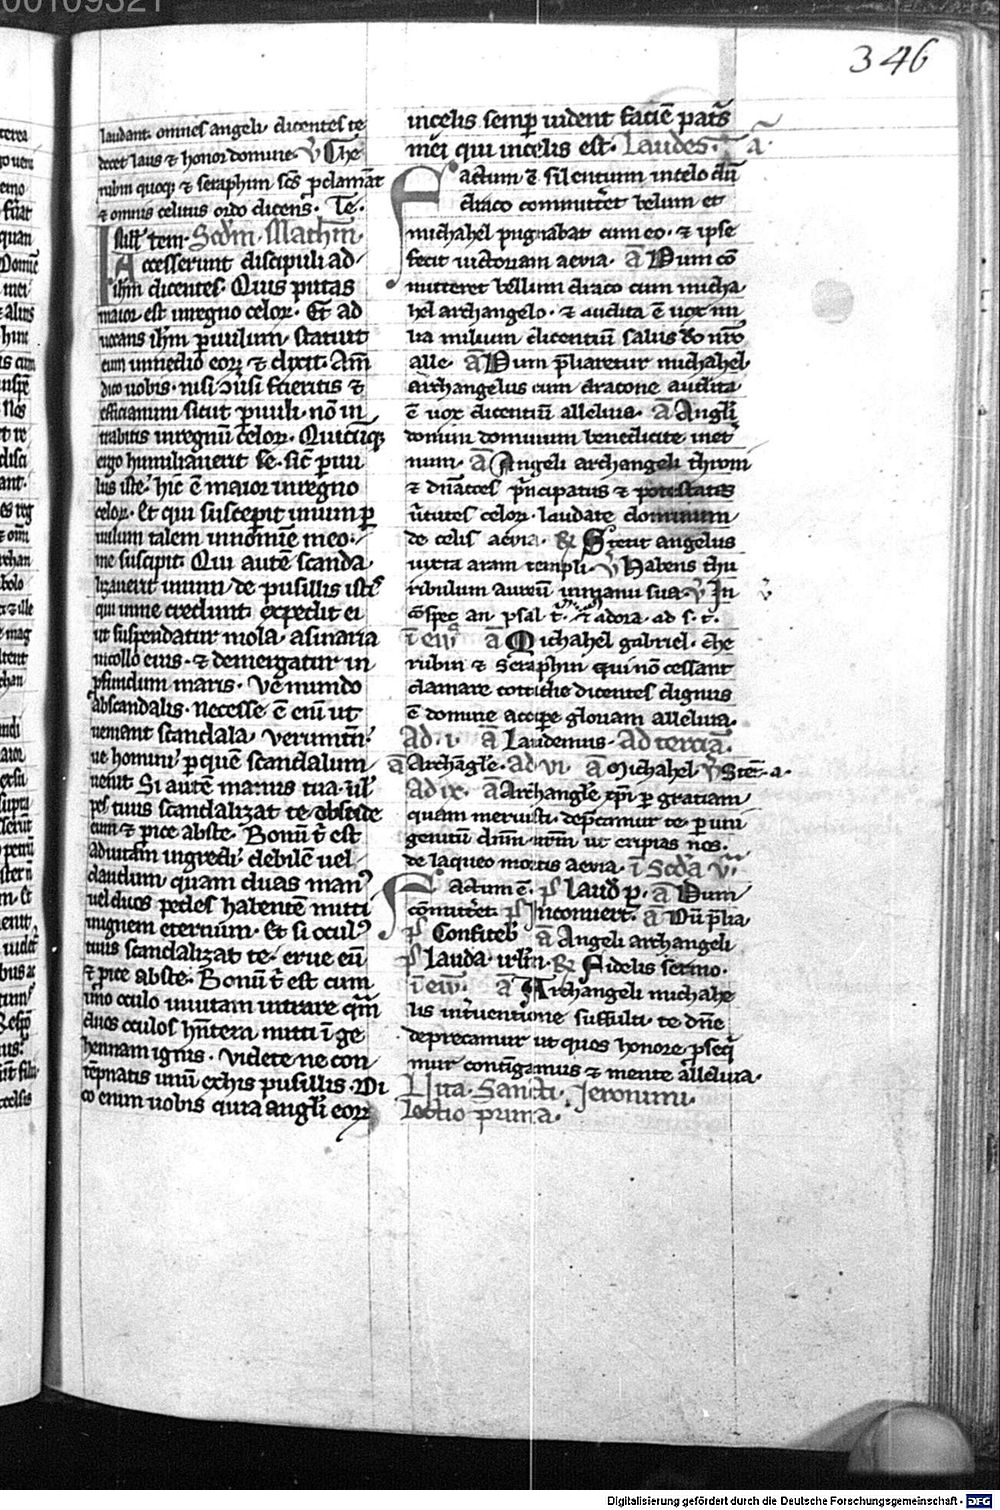 346
laudant omnes angeli dicentes te
decet laus ⁊ honor domine. V̄ Che
rubin quoq; ⁊ seraphin scs̄ p̄clamāt
⁊ omnis celicus ordo dicens. Te.
tem. Scdm Mathm̄.
Accesserunt discipuli ad
ihm dicentes. Quis putas
maior est in regno celoꝝ. Et ad
uocans ihs̄ paruulum statuit
eum in medio eoꝝ ⁊ dixit. Am̄
dico uobis. nisi ꝯu̓si fueritis ⁊
efficiamini sicut paruuli. nō in
trabitis in regnū celoꝝ. Quicūq;
ergo humiliauerit se. sic̄ paruu
lus iste. hic ē maior in regno
celoꝝ. Et qui susceperit unum par
uulum talem in nomīe meo.
me suscipit. Qui autē scanda
lizauerit unum de pusillis istꝭ
qui in me credunt. expedit ei
ut suspendatur mola asinaria
in collo eius. ⁊ demergatur in
ꝓfundum maris. Ve mundo
ab scandalis. necesse ē enī ut
ueniant scandala. verumtn̄
ue homini per quē scandalum
uenit. Si autē manus tua uł
pes tuus scandalizat te abscide
eum ⁊ proice abs te. Bonū t̄ est
ad uitam ingredi debilē uel
claudum quam duas manꝰ
uel duos pedes habentē mitti
in ignem eternum. Et si oculꝰ
tuus scandalizat te. erue eū
⁊ proice abs te. Bonū t̄ est cum
uno oculo in uitam intrare qm̄
duos oculos hn̄tem mitti ī ge
hennam ignis. Videte ne con
tēpnatis unū ex his pusillis. Di
co enim uobis quia angli eoꝝ
in celis semꝑ uident faciē patrs
mei qui in celis est. Laudes. ā
Factum ē silentium in celo dū
draco committ̓et bellum et
michahel pugnabat cum eo. ⁊ ipse
fecit uictoriam aeuia. ā Dum cō
mitteret bellum draco cum micha
hel archangelo. ⁊ audita ē uox mi
lia milium dicentiū salus dō nr̄o
alle. ā Dum p̄liaretur michahel
archangelus cum dracone audita
ē uox dicentiū alleluia. ā Angli
domini dominum benedicite in et̓
num. ā Angeli archangeli throni
⁊ dn̄acōes p̓ncipatus ⁊ potestates
u̓tutes celoꝝ. laudate dominum
de celis aeuia. R̄ Stetit angelus
iuxta aram templi. V̄ Habens thu
ribulum aureū in manu sua. V̄ In
cōspec an psal t̄. ⁊ adora. ad s. t̄.
ī eu̓ ā Michahel gabriel. che
rubin ⁊ Seraphin qui nō cessant
clamare cottidie dicentes dignus
ē domine accipe gloriam alleluia.
Ad .i. ā Laudemus. Ad terciā.
ā Archāgle. ad vi. ā Michahel. V̄ Stet̄. a.
Ad ix. ā Archangle xp̄i per gratiam
quam meruisti. dep̄camur te. per uni
genitū dnm̄ nr̄m ut eripias nos.
de laqueo mortis aeuia. ī Scd̄a V̄
Factum ē. ps̄ Laud p. ā Dum
cōmitt̓et. ps̄ In conuert̄. ā Dū p̄lia
ps̄ Confiteb̓ ā Angeli archangeli
ps̄ Lauda irlm̄. R̄ Fidelis sermo.
ī eu̓. ā Archangeli michahe
lis int̓uentione suffulti. te dn̄e
deprecamur ut quos honore ꝓseq̓
mur contigamus ⁊ mente alleluia.
Uita. Sancti. Jeronimi.
Lectio prima.
Digitalisierung gefördert durch die Deutsche Forschungsgemeinschaft - DFG